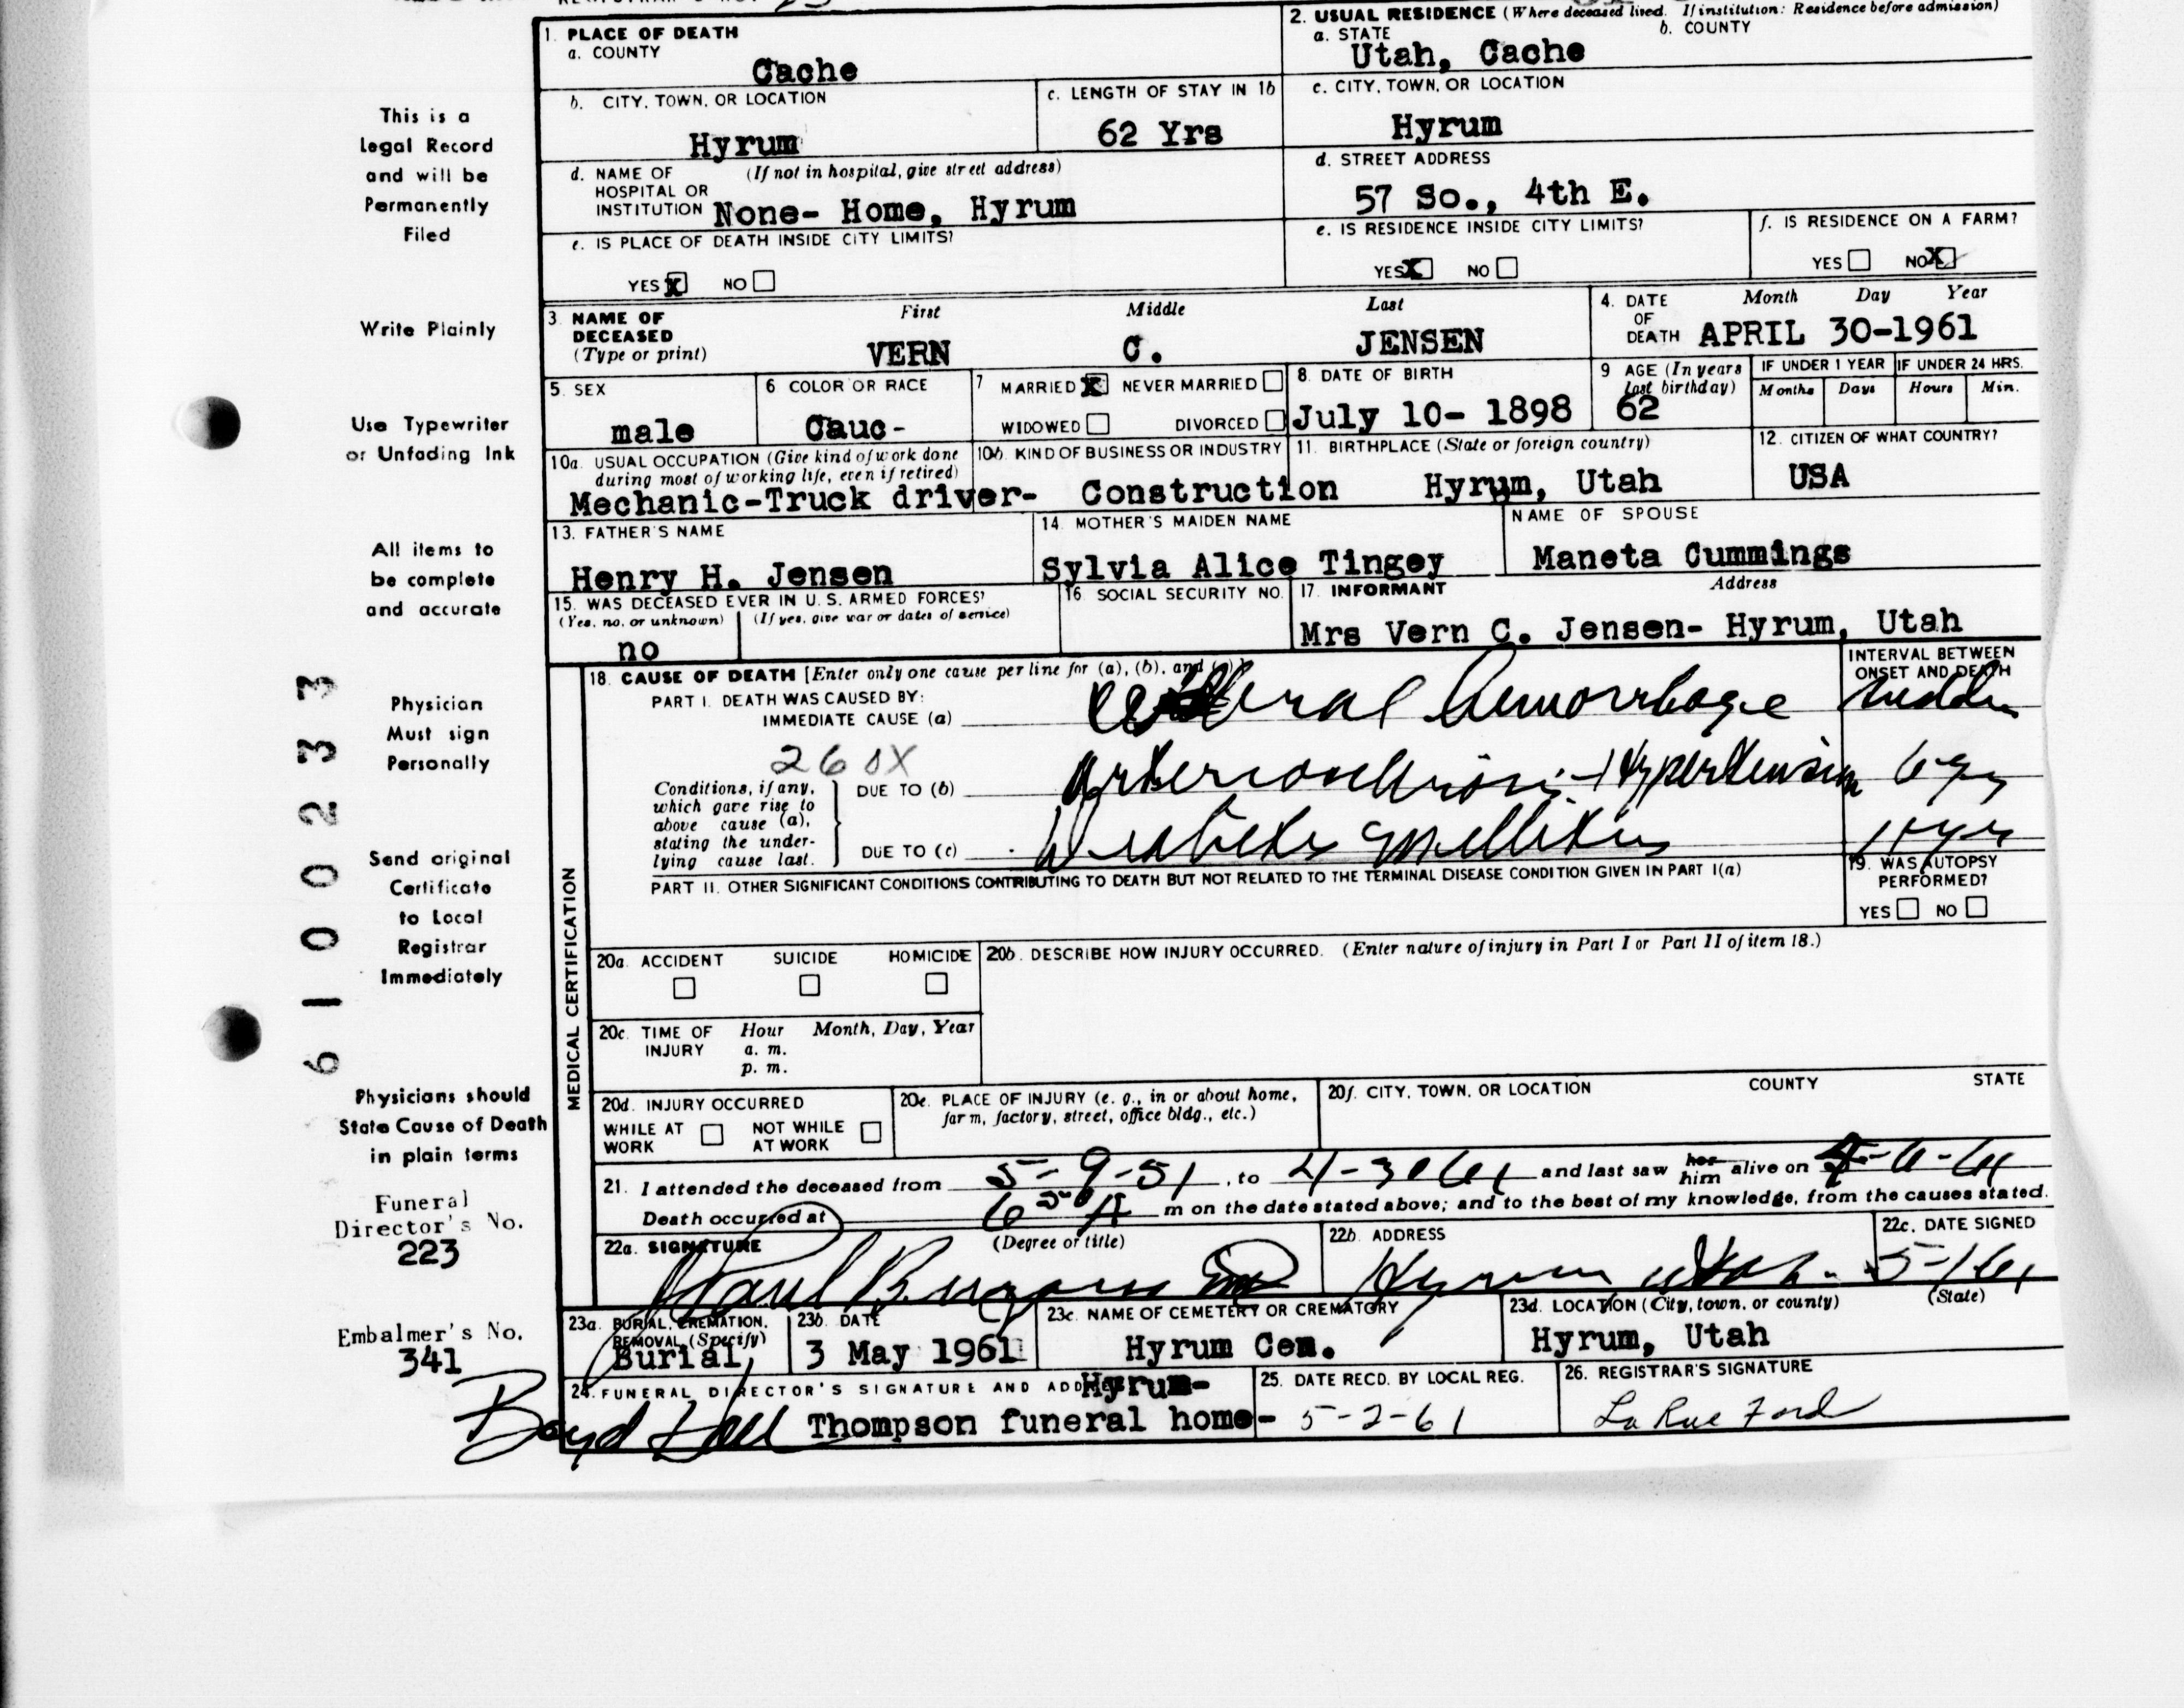 1. PLACE OF DEATH
a. COUNTY
Cache
2. USUAL RESIDENCE (Where deceased lived. If institution: Residence before admission)
a. STATE
b. COUNTY
Utah, Cache
b. CITY, TOWN, OR LOCATION
Hyrum
c. LENGTH OF STAY IN 1b
62 Yrs
c. CITY, TOWN, OR LOCATION
Hyrum
d. NAME OF (If not in hospital, give street address)
HOSPITAL OR
INSTITUTION None- Home, Hyrum
d. STREET ADDRESS
57 So., 4th E.
e. IS PLACE OF DEATH INSIDE CITY LIMITS?
YES X NO
e. IS RESIDENCE INSIDE CITY LIMITS?
YES X NO
f. IS RESIDENCE ON A FARM?
YES NO X
3. NAME OF
DECEASED
(Type or print)
First Middle Last
VERN C. JENSEN
4. DATE
OF
DEATH
Month Day Year
APRIL 30-1961
5. SEX
male
6 COLOR OR RACE
Cauc-
7 MARRIED X NEVER MARRIED
WIDOWED DIVORCED
8. DATE OF BIRTH
July 10- 1898
9 AGE (In years
last birthday)
62
IF UNDER 1 YEAR
Months Days
IF UNDER 24 HRS.
Hours Min.
10a. USUAL OCCUPATION (Give kind of work done
during most of working life, even if retired)
Mechanic-Truck driver-
10b. KIND OF BUSINESS OR INDUSTRY
Construction
11. BIRTHPLACE (State or foreign country)
Hyrum, Utah
12. CITIZEN OF WHAT COUNTRY?
USA
13. FATHER'S NAME
Henry H. Jensen
14. MOTHER'S MAIDEN NAME
Sylvia Alice Tingey
NAME OF SPOUSE
Maneta Cummings
15. WAS DECEASED EVER IN U. S. ARMED FORCES?
(Yes, no, or unknown) (If yes, give war or dates of service)
no
16. SOCIAL SECURITY NO.
17. INFORMANT Address
Mrs Vern C. Jensen- Hyrum, Utah
18. CAUSE OF DEATH [Enter only one cause per line for (a), (b), and
PART I. DEATH WAS CAUSED BY:
IMMEDIATE CAUSE (a) hemorrhage
INTERVAL BETWEEN
ONSET AND DEATH
sudden
Conditions, if any,
which gave rise to
above cause (a),
stating the under-
lying cause last.
DUE TO (b) Hypertension
DUE TO (c) Diabetes Mellitus
PART II. OTHER SIGNIFICANT CONDITIONS CONTRIBUTING TO DEATH BUT NOT RELATED TO THE TERMINAL DISEASE CONDITION GIVEN IN PART I(a)
19. WAS AUTOPSY
PERFORMED?
YES NO
MEDICAL CERTIFICATION
20a. ACCIDENT SUICIDE HOMICIDE
20b. DESCRIBE HOW INJURY OCCURRED. (Enter nature of injury in Part I or Part II of item 18.)
20c. TIME OF Hour Month, Day, Year
INJURY a. m.
p. m.
20d. INJURY OCCURRED
WHILE AT NOT WHILE
WORK AT WORK
20e. PLACE OF INJURY (e. g., in or about home,
farm, factory, street, office bldg., etc.)
20f. CITY, TOWN, OR LOCATION COUNTY STATE
21. I attended the deceased from 5-9-51, to 4-30 61 and last saw her him alive on
Death occurred at m on the date stated above; and to the best of my knowledge, from the causes stated.
22a. SIGNATURE (Degree or title)
Paul
22b. ADDRESS
Hyrum Utah.
22c. DATE SIGNED
23a. BURIAL, CREMATION,
REMOVAL (Specify)
Burial,
23b. DATE
3 May 1961
23c. NAME OF CEMETERY OR CREMATORY
Hyrum Cem.
23d. LOCATION (City, town, or county) (State)
Hyrum, Utah
24. FUNERAL DIRECTOR'S SIGNATURE AND ADDRESS
Hyrum-
Boyd Hall Thompson funeral home-
25. DATE RECD. BY LOCAL REG.
5-2-61
26. REGISTRAR'S SIGNATURE
La Rue Ford
This is a
Legal Record
and will be
Permanently
Filed
Write Plainly
Use Typewriter
or Unfading Ink
All items to
be complete
and accurate
Physician
Must sign
Personally
Send original
Certificate
to Local
Registrar
Immediately
Physicians should
State Cause of Death
in plain terms
Funeral
Director's No.
223
Embalmer's No.
341
6100233